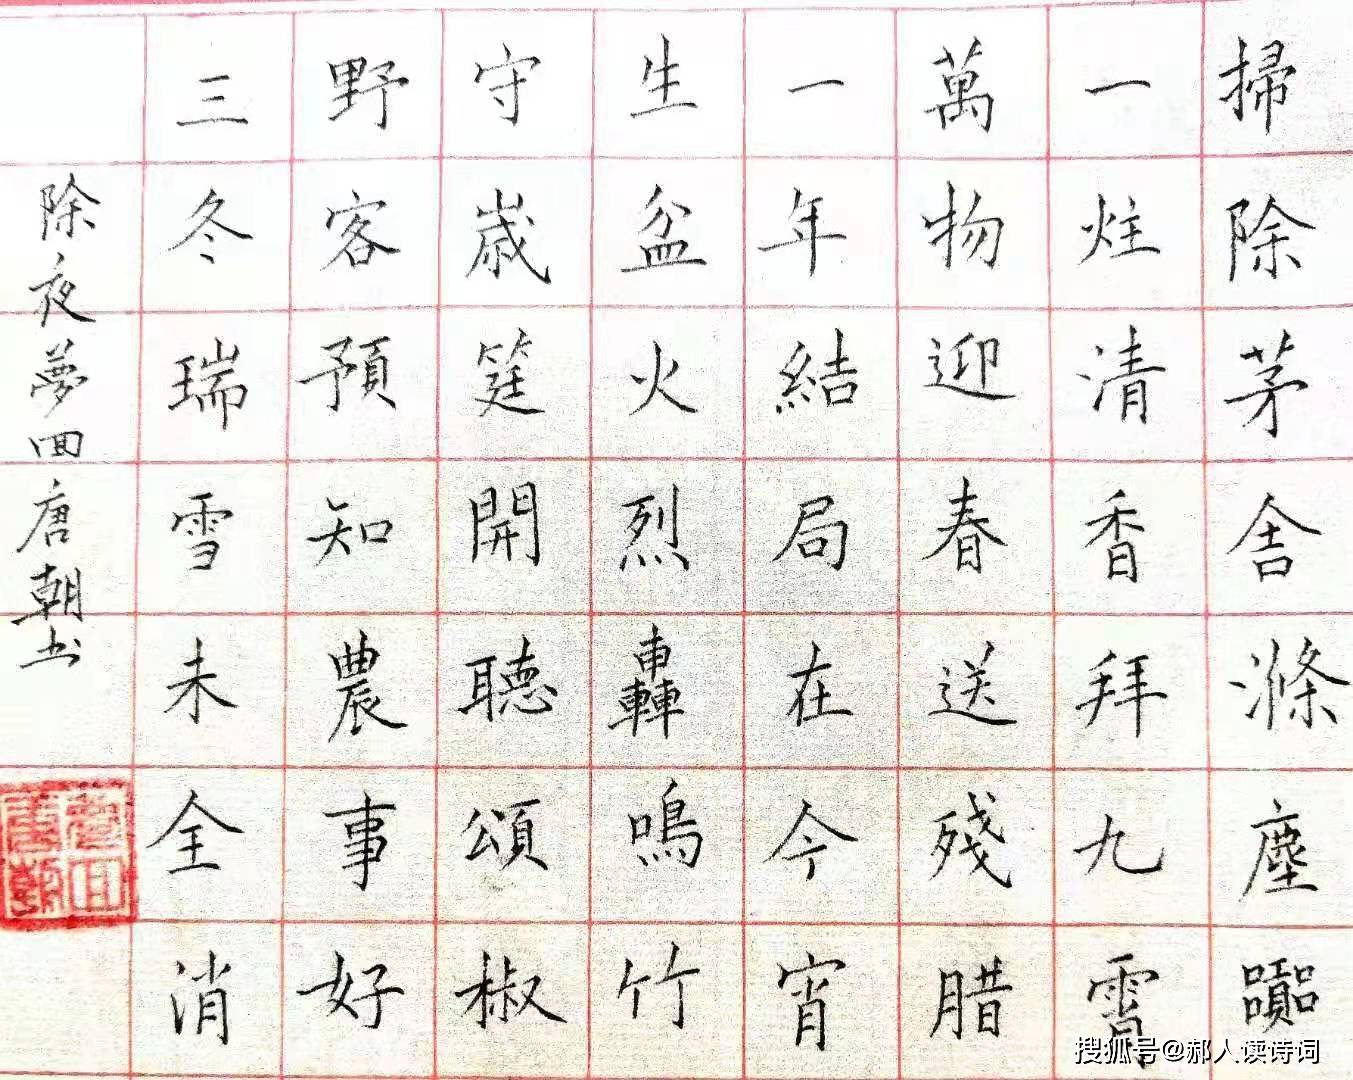 掃除茅舍滌塵囂
一炷清香拜九霄
萬物迎春送殘腊
一年結局在今宵
生盆火烈轟鳴竹
守歲筵開聽頌椒
野客預知農事好
三冬瑞雪未全消
除夜夢回唐朝书
搜狐号@郝人读诗词